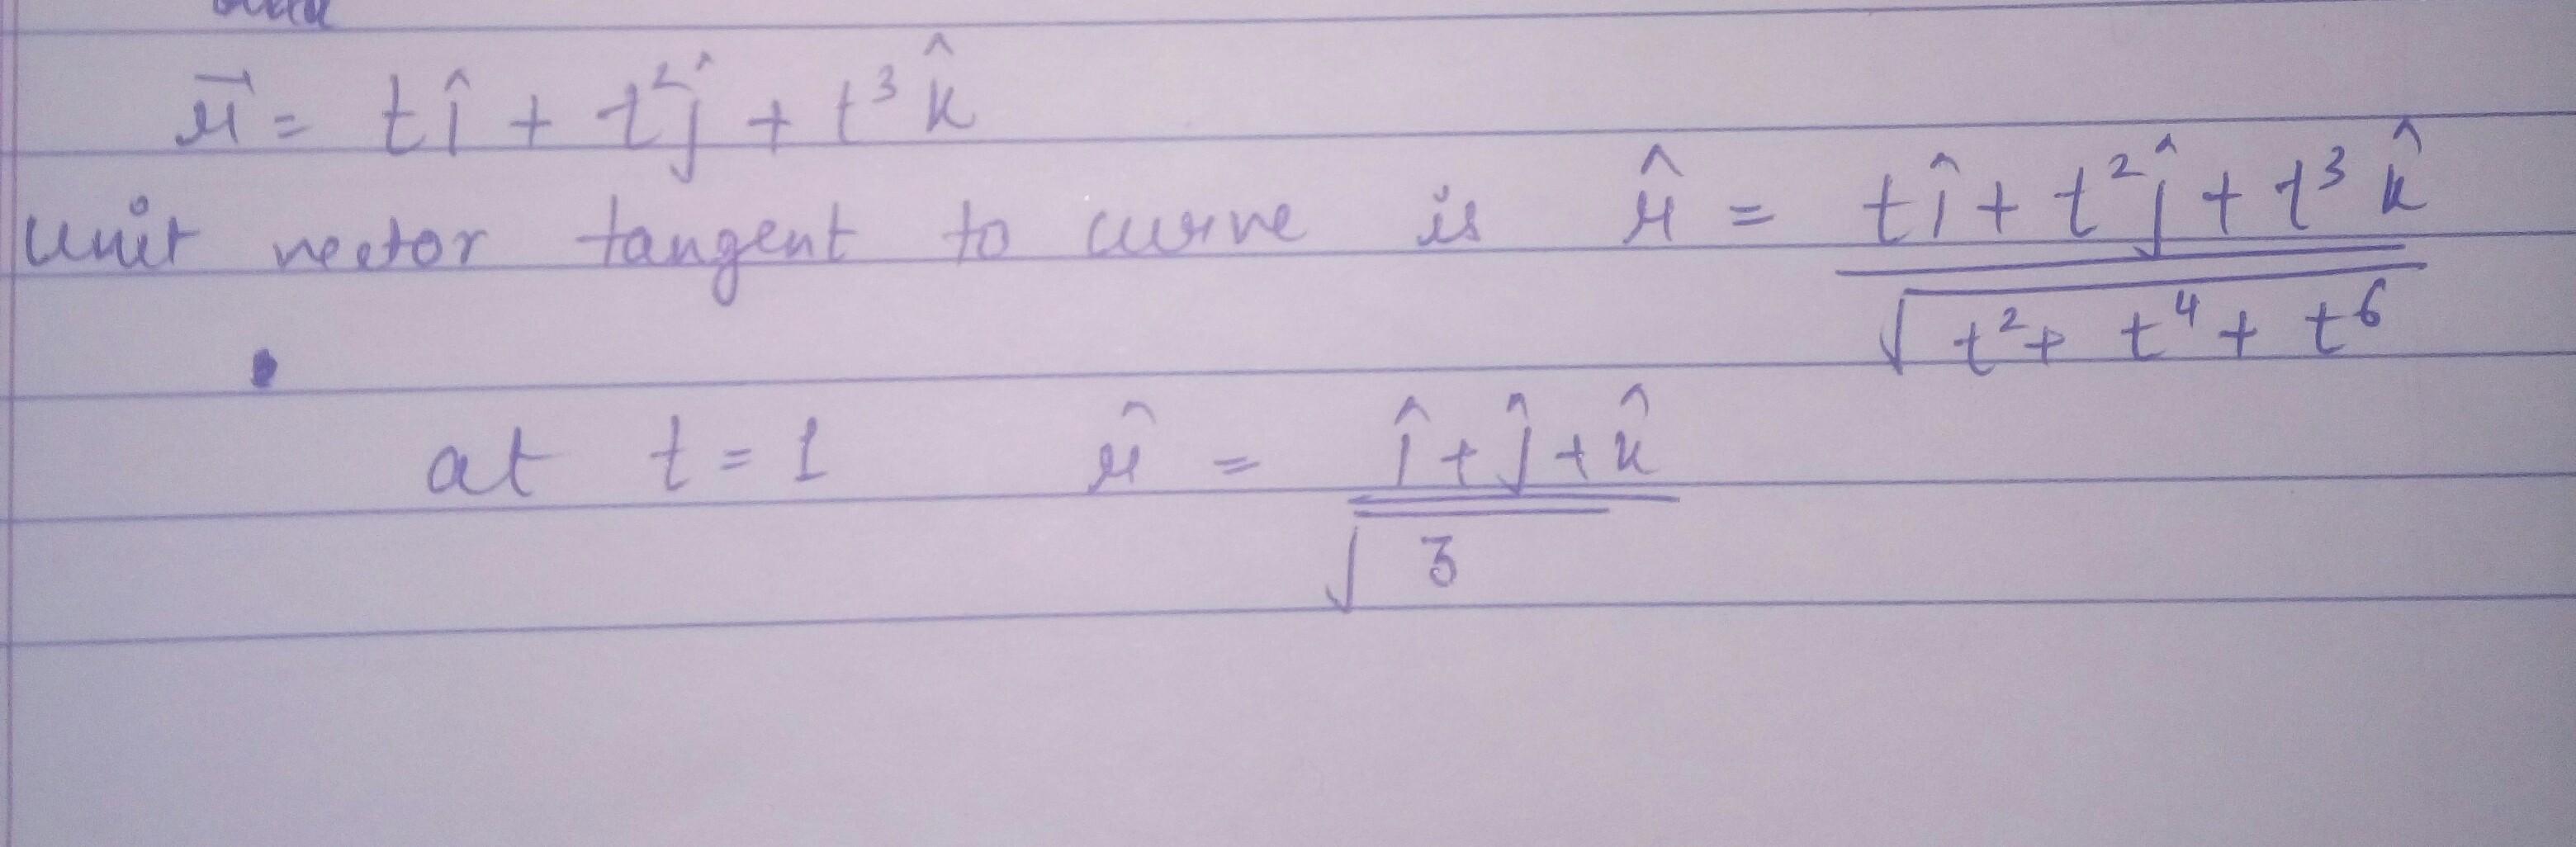 r⃗ = t î + t² ĵ + t³ k̂
unit vector tangent to curve is r̂ = t î + t² ĵ + t³ k̂ / √(t² + t⁴ + t⁶)
at t = 1 r̂ = î + ĵ + k̂ / √3